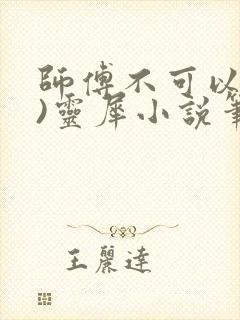 師傅不可以
)靈犀小說
王麗達